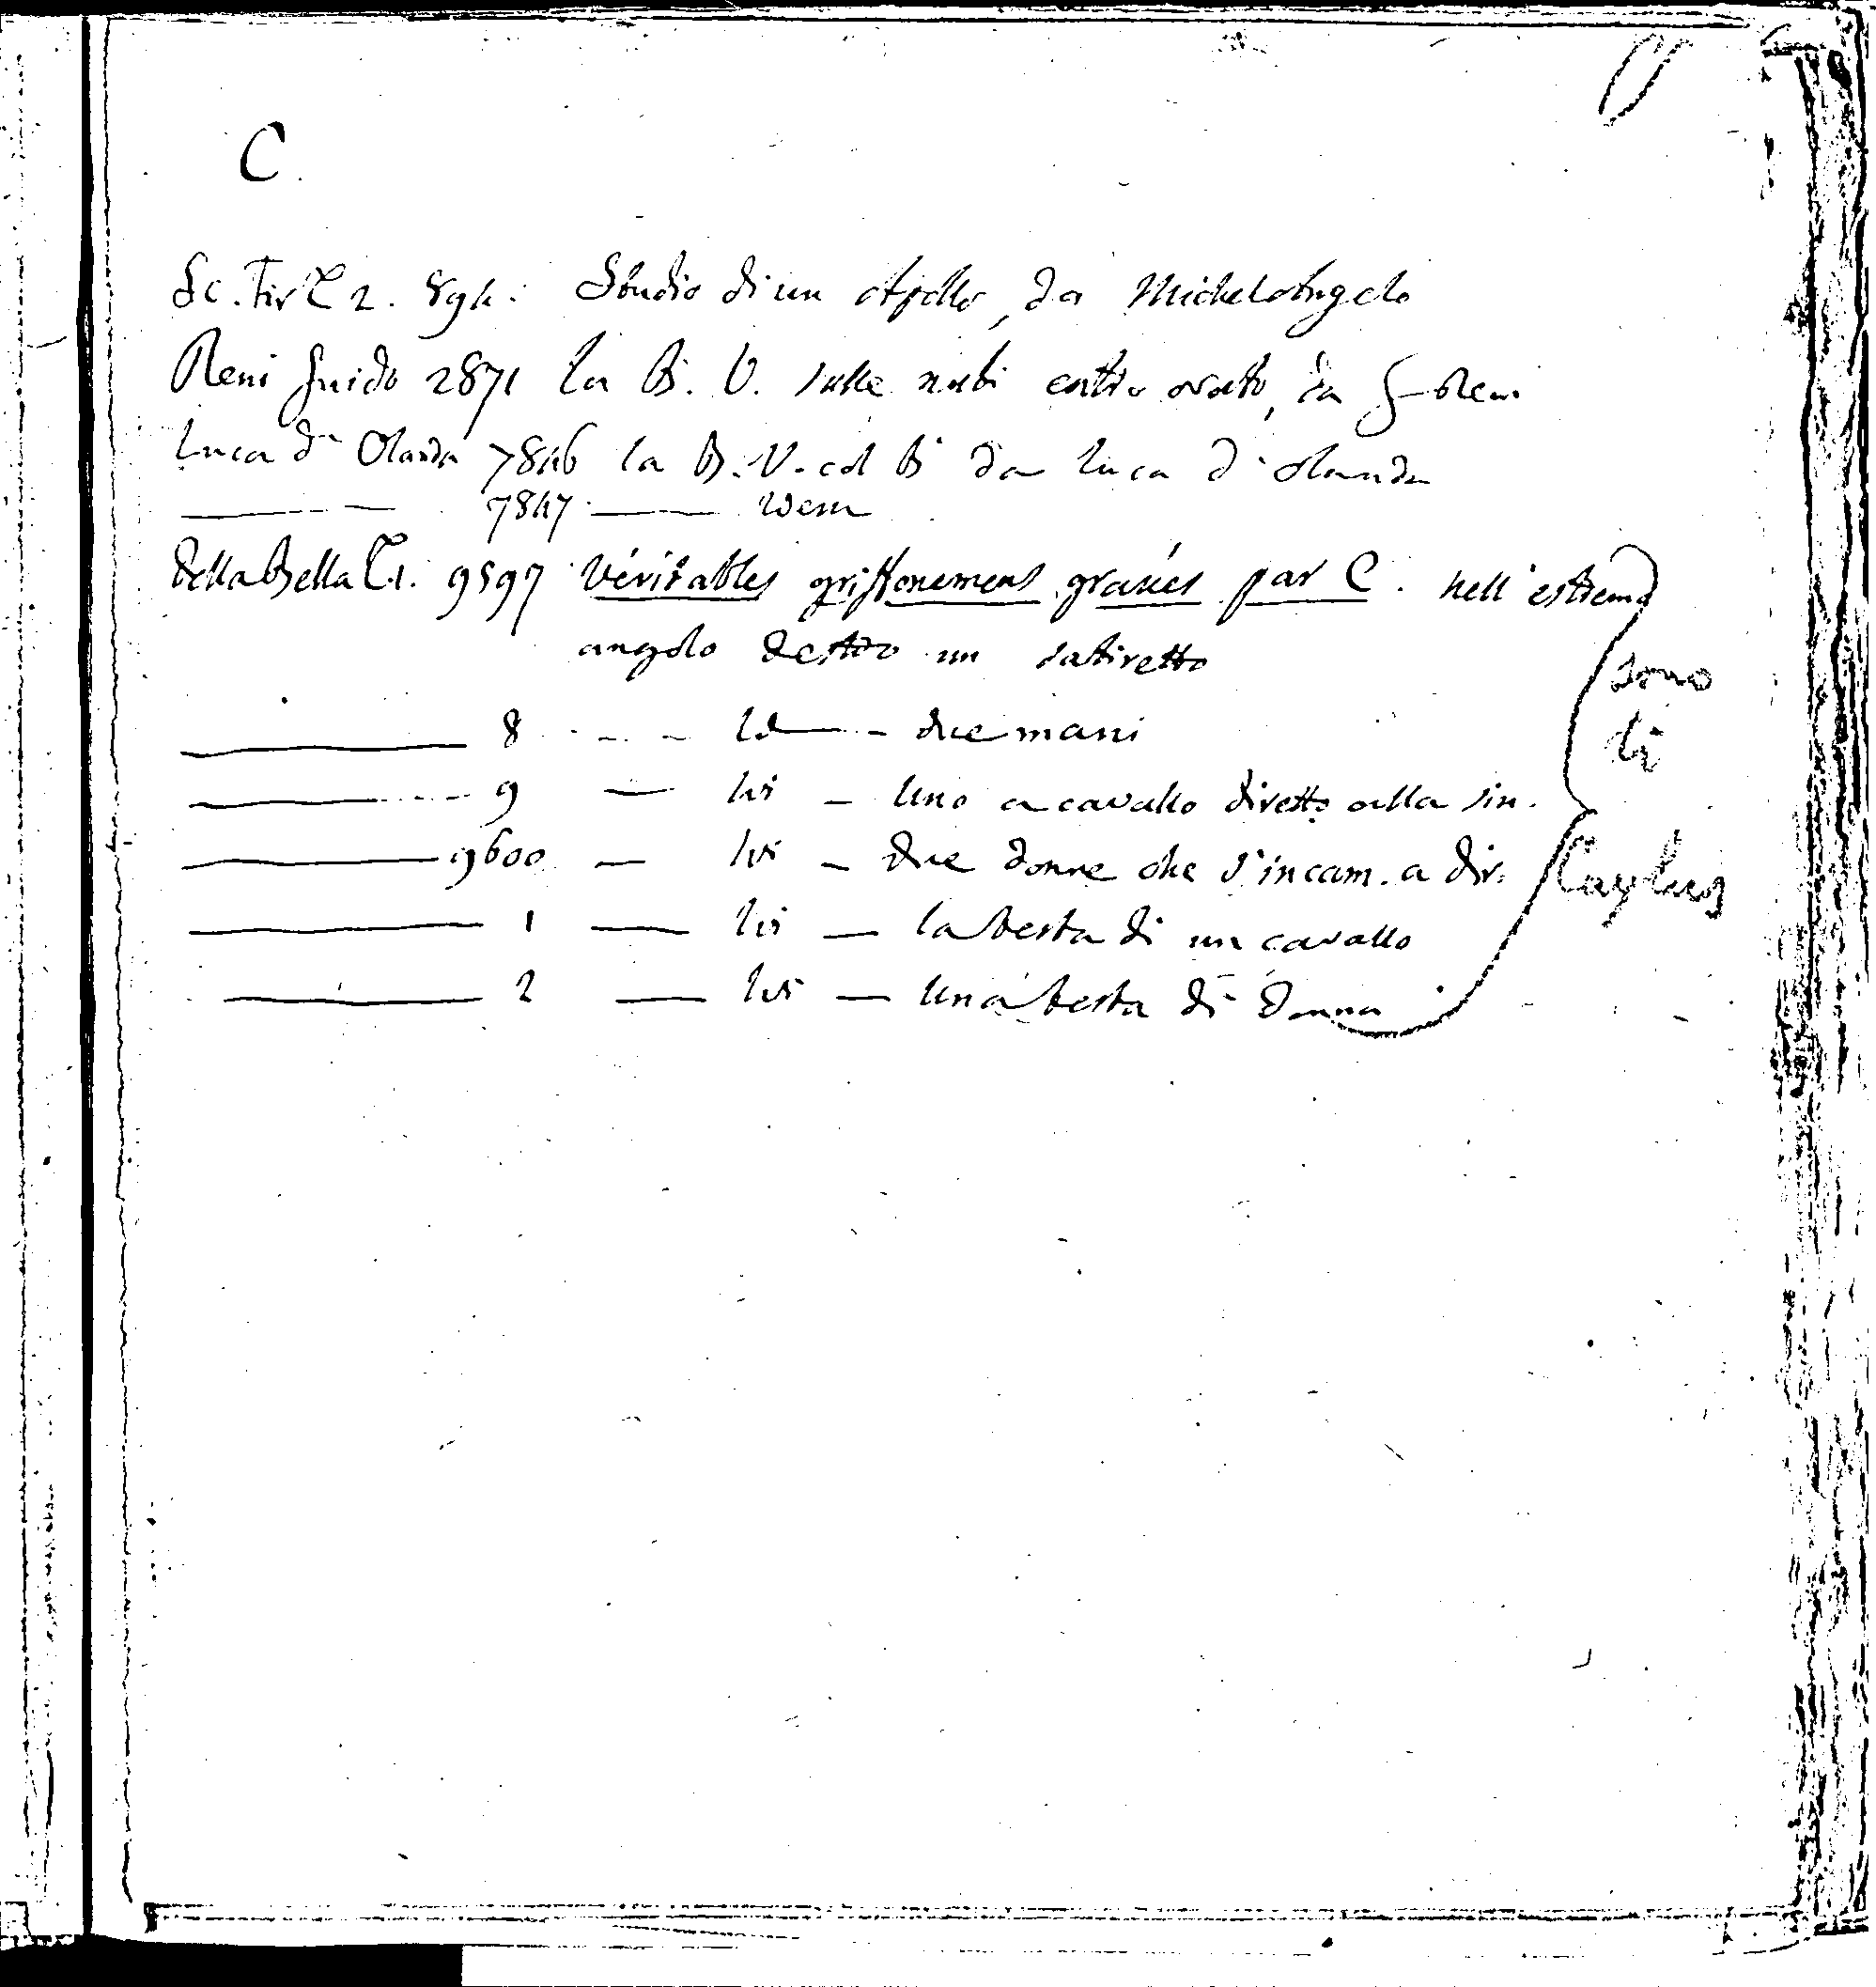 C.
Sc. Fir T 2. 894. Studio di un Apollo, da Michelangelo
Reni Guido 2871 la B. V. sulle nubi entro ovato, da G. Reni
Luca d'Olanda 7846 la B. V. col B da Luca d'Olanda
7847 Idem
Della Bella T. 1. 9597 Véritables griffonemens gravés par C. nell'estremo
angolo destro un satiretto
8 Id due mani
9 ivi - Uno a cavallo diretto alla sin.
9600 ivi - due donne che s'incam. a dir.
1 ivi - la testa di un cavallo
2 ivi - Una testa di Donna
sono
di
Caylus